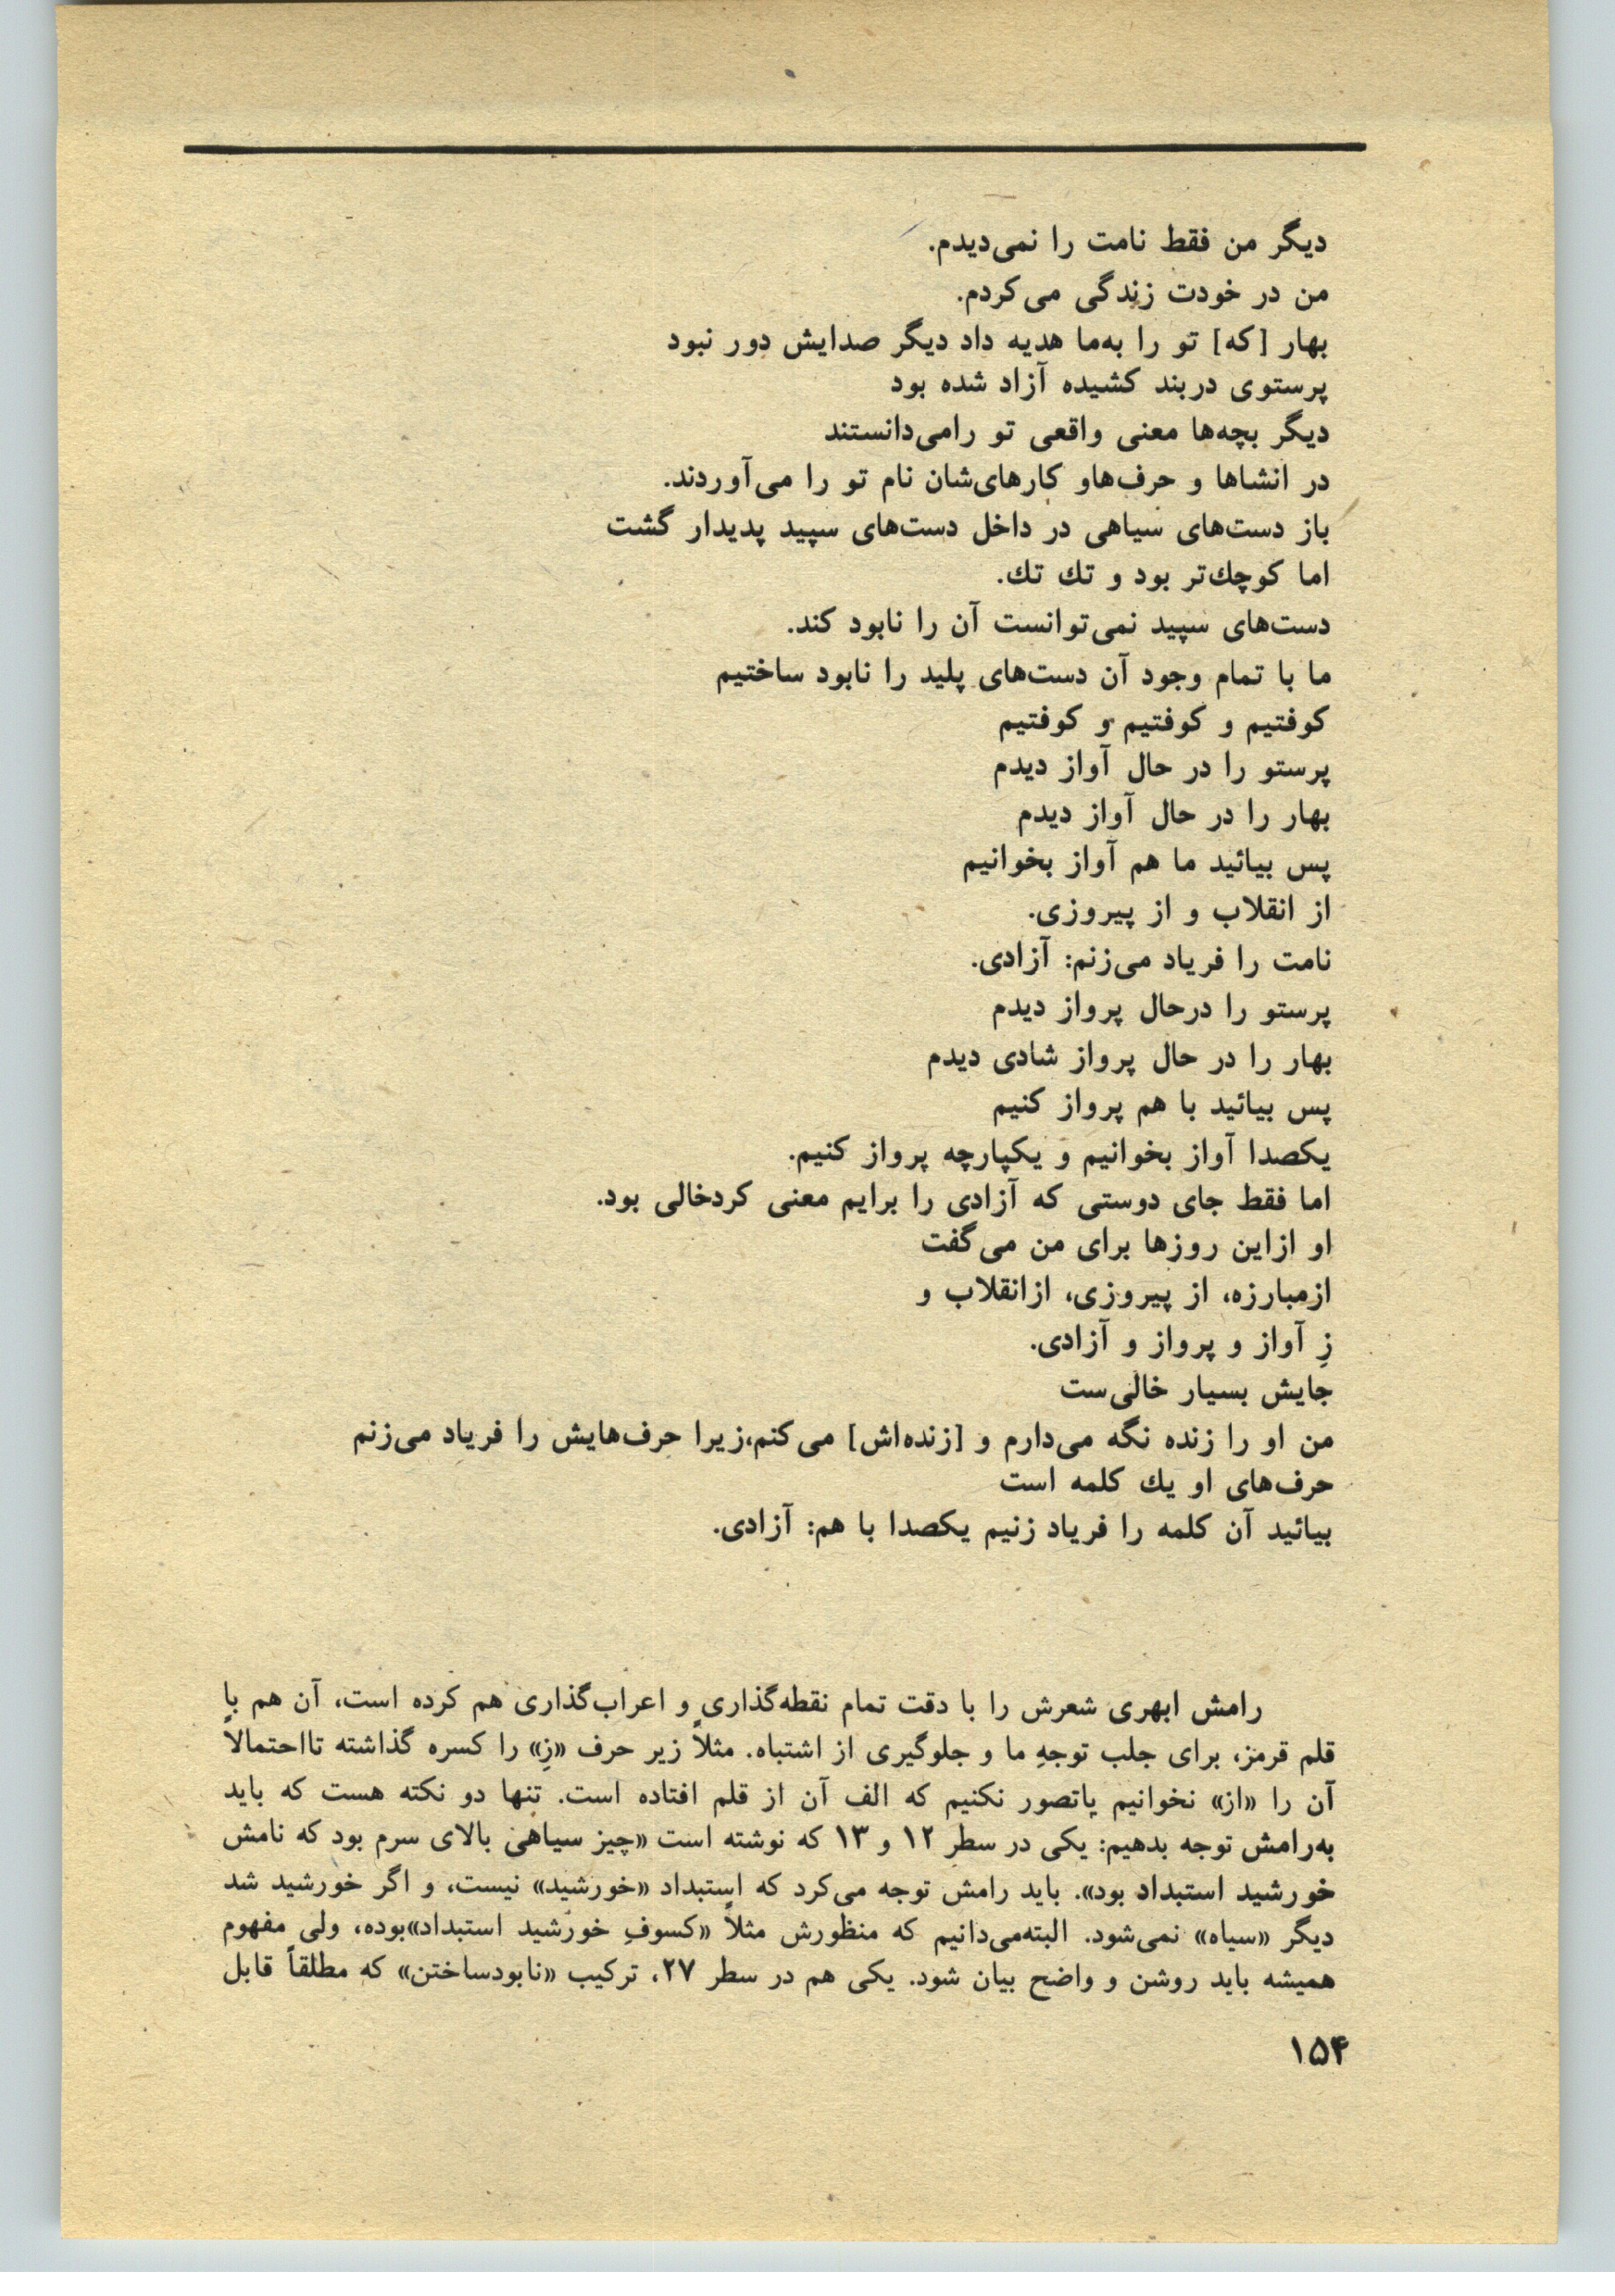 دیگر من فقط نامت را نمی‌دیدم.
من در خودت زندگی می‌کردم.
بهار [که] تو را به‌ما هدیه داد دیگر صدایش دور نبود
پرستوی دربند کشیده آزاد شده بود
دیگر بچه‌ها معنی واقعی تو رامی‌دانستند
در انشاها و حرف‌هاو کارهای‌شان نام تو را می‌آوردند.
باز دست‌های سیاهی در داخل دست‌های سپید پدیدار گشت
اما کوچك‌تر بود و تك تك.
دست‌های سپید نمی‌توانست آن را نابود کند.
ما با تمام وجود آن دست‌های پلید را نابود ساختیم
کوفتیم و کوفتیم و کوفتیم
پرستو را در حال آواز دیدم
بهار را در حال آواز دیدم
پس بیائید ما هم آواز بخوانیم
از انقلاب و از پیروزی.
نامت را فریاد می‌زنم: آزادی.
پرستو را درحال پرواز دیدم
بهار را در حال پرواز شادی دیدم
پس بیائید با هم پرواز کنیم
یکصدا آواز بخوانیم و یکپارچه پرواز کنیم.
اما فقط جای دوستی که آزادی را برایم معنی کردخالی بود.
او ازاین روزها برای من می‌گفت
ازمبارزه، از پیروزی، ازانقلاب و
زِ آواز و پرواز و آزادی.
جایش بسیار خالی‌ست
من او را زنده نگه می‌دارم و [زنده‌اش] می‌کنم،زیرا حرف‌هایش را فریاد می‌زنم
حرف‌های او یك کلمه است
بیائید آن کلمه را فریاد زنیم یکصدا با هم: آزادی.
رامش ابهری شعرش را با دقت تمام نقطه‌گذاری و اعراب‌گذاری هم کرده است، آن هم با
قلم قرمز، برای جلب توجهِ ما و جلوگیری از اشتباه. مثلاً زیر حرف «زِ» را کسره گذاشته تااحتمالاً
آن را «از» نخوانیم یاتصور نکنیم که الف آن از قلم افتاده است. تنها دو نکته هست که باید
به‌رامش توجه بدهیم: یکی در سطرِ ۱۲ و ۱۳ که نوشته است «چیز سیاهی بالای سرم بود که نامش
خورشید استبداد بود». باید رامش توجه می‌کرد که استبداد «خورشید» نیست، و اگر خورشید شد
دیگر «سیاه» نمی‌شود. البته‌می‌دانیم که منظورش مثلاً «کسوفِ خورشید استبداد»بوده، ولی مفهوم
همیشه باید روشن و واضح بیان شود. یکی هم در سطر ۲۷، ترکیب «نابودساختن» که مطلقاً قابل
۱۵۴